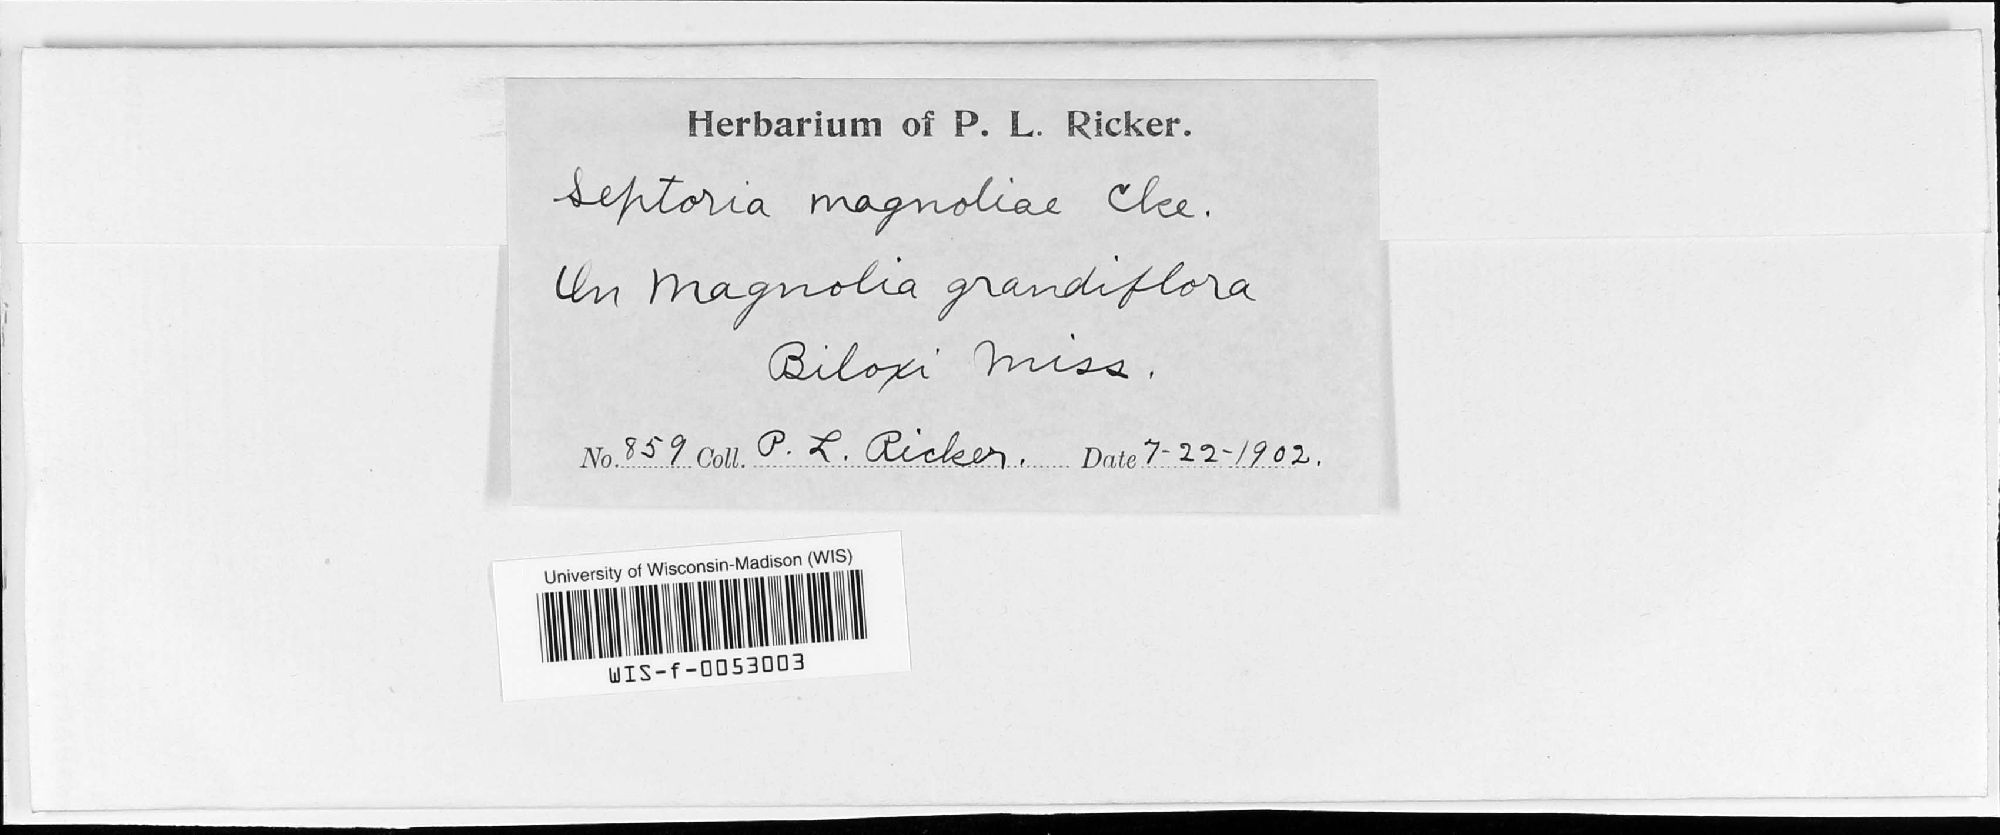 Herbarium of P. L. Ricker.
Septoria magnoliae Cke.
On Magnolia grandiflora
Biloxi Miss.
No. 859 Coll. P. L. Ricker. Date 7-22-1902.
University of Wisconsin-Madison (WIS)
WIS-f-0053003